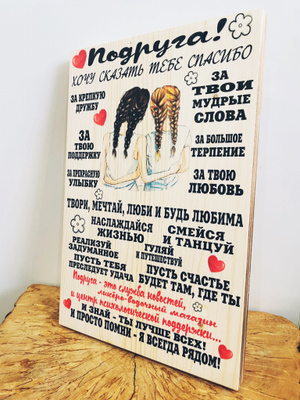 Подруга!
ХОЧУ СКАЗАТЬ ТЕБЕ СПАСИБО
ЗА КРЕПКУЮ
ДРУЖБУ
ЗА
ТВОИ
МУДРЫЕ
СЛОВА
ЗА
ТВОЮ
ПОДДЕРЖКУ
ЗА БОЛЬШОЕ
ТЕРПЕНИЕ
ЗА ПРЕКРАСНУЮ
УЛЫБКУ
ЗА ТВОЮ
ЛЮБОВЬ
ТВОРИ, МЕЧТАЙ, ЛЮБИ И БУДЬ ЛЮБИМА
НАСЛАЖДАЙСЯ
ЖИЗНЬЮ
СМЕЙСЯ
И ТАНЦУЙ
РЕАЛИЗУЙ
ЗАДУМАННОЕ
ГУЛЯЙ
И ПУТЕШЕСТВУЙ
ПУСТЬ ТЕБЯ
ПРЕСЛЕДУЕТ УДАЧА
ПУСТЬ СЧАСТЬЕ
БУДЕТ ТАМ, ГДЕ ТЫ
Подруга - это служба новостей,
ликёро-водочный магазин
и центр психологической поддержки...
И ЗНАЙ - ТЫ ЛУЧШЕ ВСЕХ!
И ПРОСТО ПОМНИ - Я ВСЕГДА РЯДОМ!